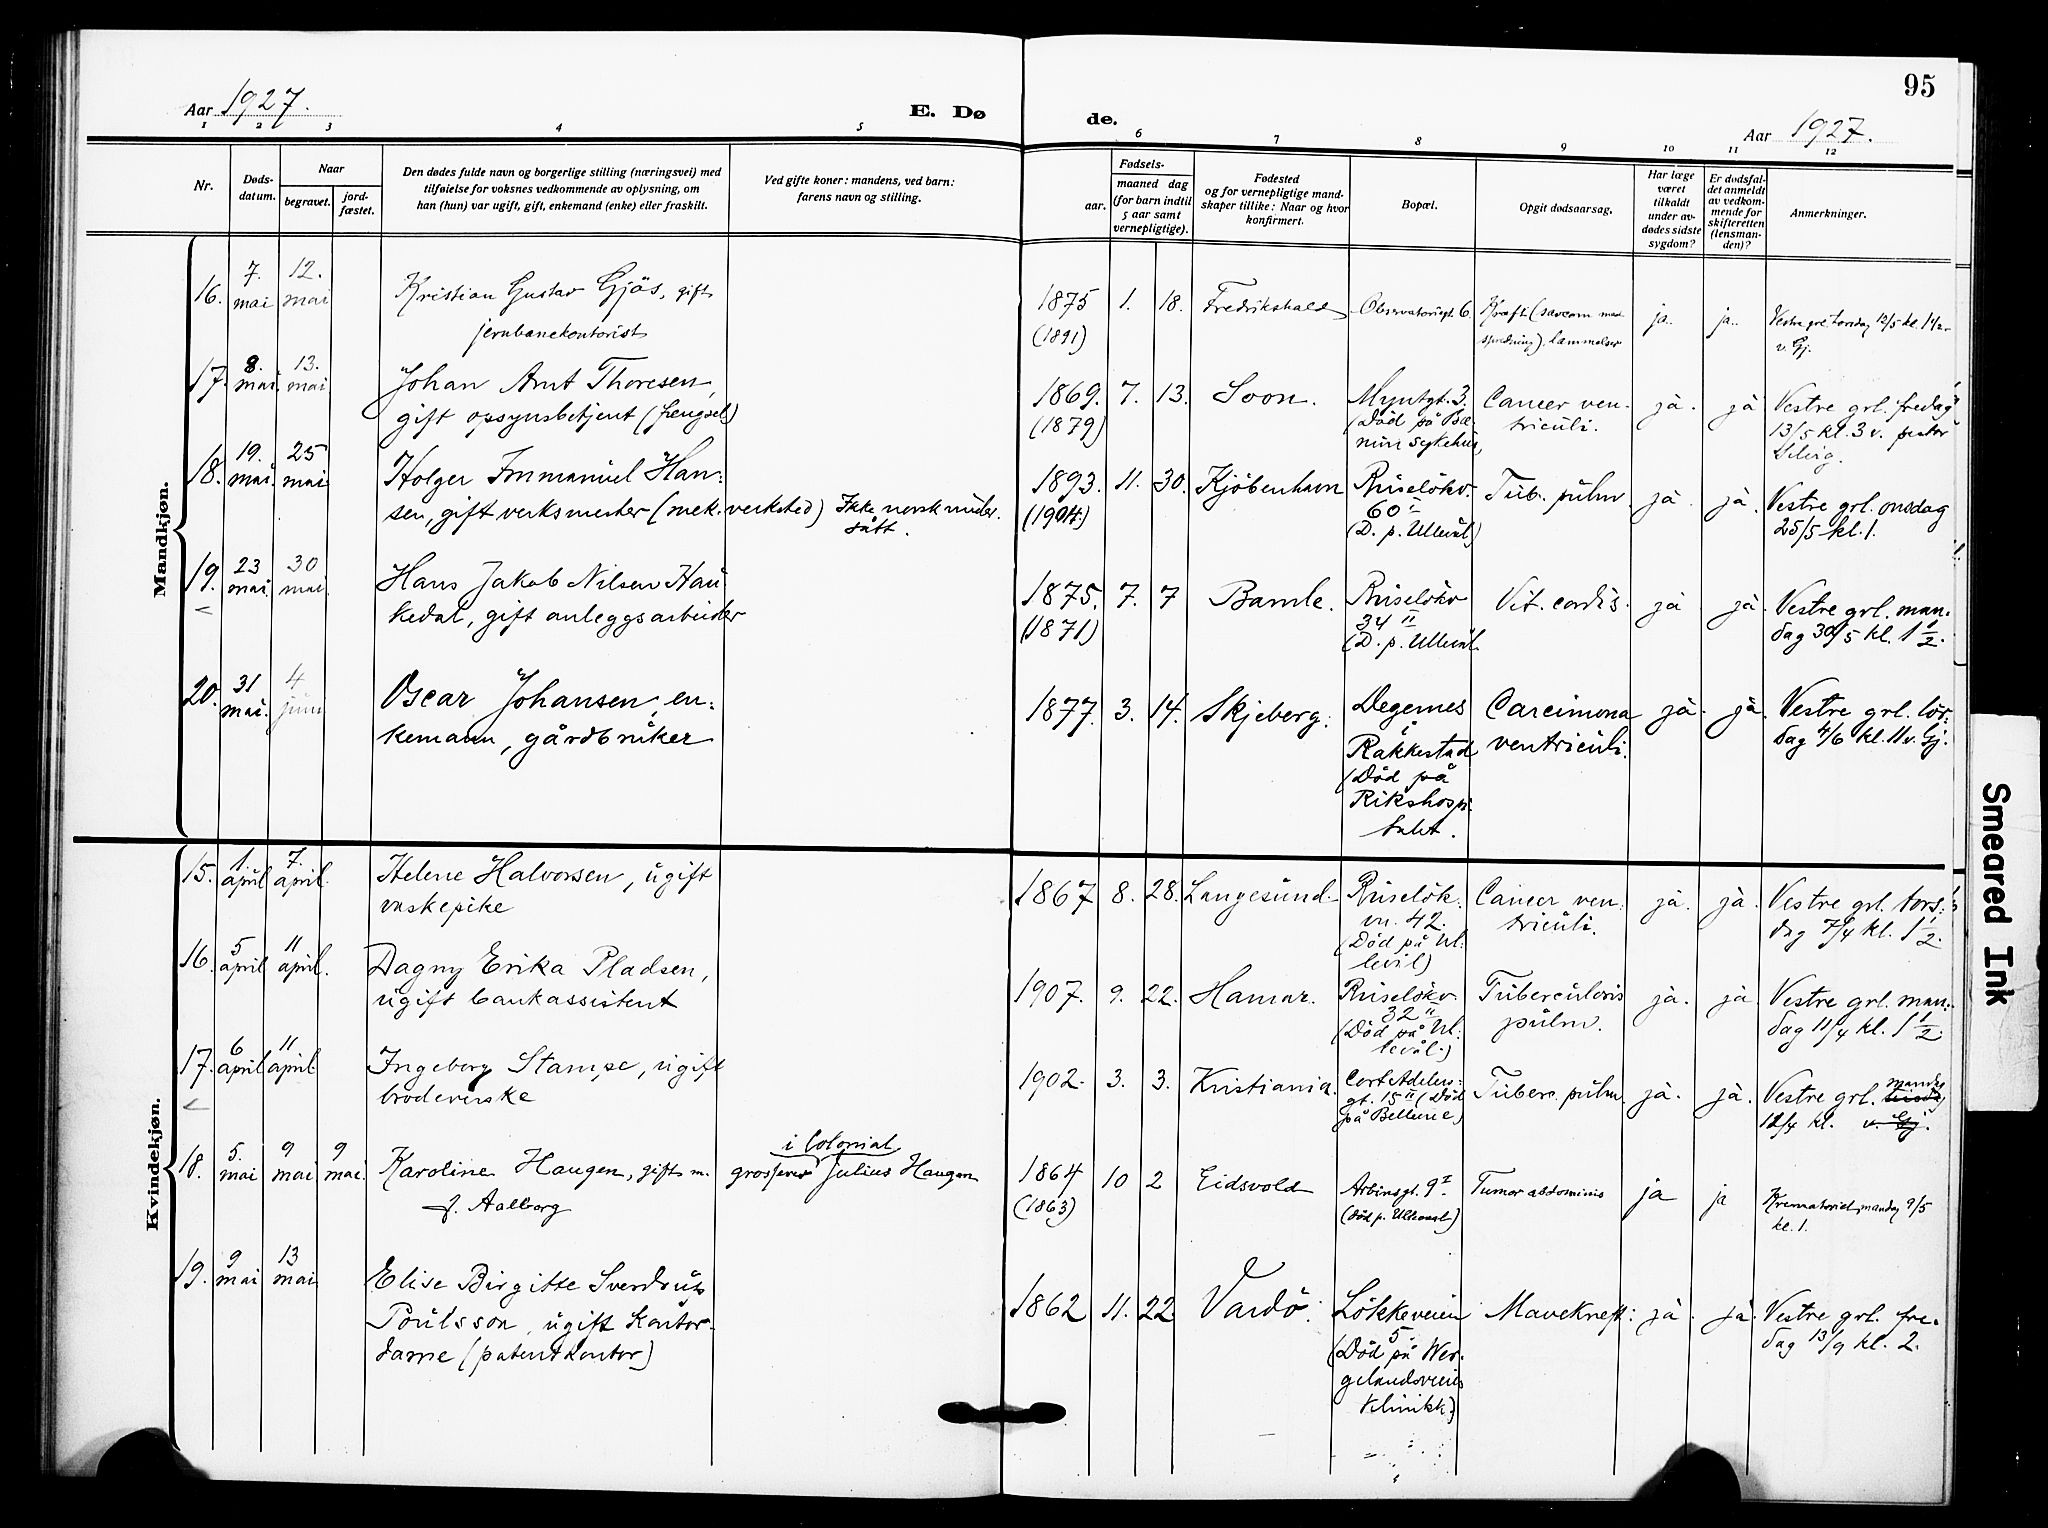 95
Aar 1927.
E. Dø
de.
Aar 1927.
1 2 3 4 5 6 7 8 9 10 11 12
Nr.
Døds-
datum.
Naar
begravet.
jord-
fæstet.
Den dødes fulde navn og borgerlige stilling (næringsvei) med
tilføielse for voksnes vedkommende av oplysning, om
han (hun) var ugift, gift, enkemand (enke) eller fraskilt.
Ved gifte koner: mandens, ved barn:
farens navn og stilling.
Fødsels-
aar.
maaned dag
(for barn indtil
5 aar samt
vernepligtige).
Fødested
og for vernepligtige mand-
skaper tillike: Naar og hvor
konfirmert.
Bopæl.
Opgit dødsaarsag.
Har læge
været
tilkaldt
under av-
dødes sidste
sygdom?
Er dødsfal-
det anmeldt
av vedkom-
mende for
skifteretten
(lensman-
den)?
Anmerkninger.
Mandkjøn.
16. 7. mai 12. mai Kristian Gustav Gjös, gift
jernbanekontorist
1875 1. 18. Fredrikshald Observatoriegt. 6 Kræft (sarcom med
(1891) spredning), lammelser
ja. ja. Vestre grl. torsdag 12/5 kl. 1 1/2
v. Gj.
17. 8. mai 13. mai Johan Arnt Thoresen,
gift opsynsbetjent (fengsel)
1869. 7. 13. Soon. Myntgt. 3. Cancer ven-
(1879) (Död på Bæ- triculi.
rum sykehus,
ja. ja Vestre grl. fredag
13/5 kl. 3 v. pastor
Selvig.
18. 19. mai 25 mai Holger Immanuel Han-
sen, gift verksmester (mek. verksted) Ikke norsk under-
sått.
1893. 11. 30. Kjöbenhavn Ruselökv. Tub. pulm. ja. ja.
(1904) 60 II
(D. p. Ullevål)
Vestre grl. onsdag
25/5 kl. 1.
19. 23 mai 30 mai. Hans Jakob Nilsen Hau-
kedal, gift anleggsarbeider
1875. 7. 7 Bamle. Ruselökv Vit. cordis. ja ja.
(1871) 34 II
(D. p. Ullevål
Vestre grl. man-
dag 30/5 kl. 1 1/2.
20. 31 mai. 4 juni Oscar Johansen, en-
kemann, gårdbruker
1877. 3. 14. Skjeberg. Degernes Carcimona ja. ja.
i
Rakkestad ventriculi.
(Död på
Rikshospi-
talet.
Vestre grl. lör-
dag 4/6 kl. 11 v. Gj.
Kvindekjøn.
15. 1. april 7. april. Helene Halvorsen, ugift
vaskepike
1867 8. 28. Langesund. Ruselök- Cancer ven- ja. ja.
vn. 42. triculi.
(Död på Ul-
levål)
Vestre grl. tors-
dag 7/4 kl. 1 1/2.
16. 5 april 11 april. Dagny Erika Pladsen,
ugift bankassistent
1907. 9. 22. Hamar. Ruselökv. Tuberculosis ja. ja
32 II pulm.
(Död på Ul-
levål.)
Vestre grl. man-
dag 11/4 kl. 1 1/2.
17. 6 april 11 april. Ingeborg Stampe, ugift
broderерske
1902. 3. 3. Kristiania. Cort Adelers- Tuberc. pulm. ja. ja.
gt. 15 II (Död
på Bellevue)
Vestre grl. mandag
11/4 kl. v. Gj.
18. 5. mai 9 mai 9 mai. Karoline Haugen, gift m. grosserer i Colonial Julius Haugen
f. Aalborg
1864 10 2 Eidsvold Arbinsgt. 9 I Tumor abdominis ja ja
(1863) (död p. Ullevaal)
Krematoriet, mandag 9/5
kl. 1.
19. 9 mai 13 mai Elise Birgitte Sverdrup
Poulsson, ugift kontor-
dame (patentkontor)
1862 11. 22. Vardö. Lökkeveien Mavekreft. ja. ja.
5
(Död på Wer-
gelandsveiens
klinikk.)
Vestre grl. fre-
dag 13/9 kl. 2.
Smeared Ink